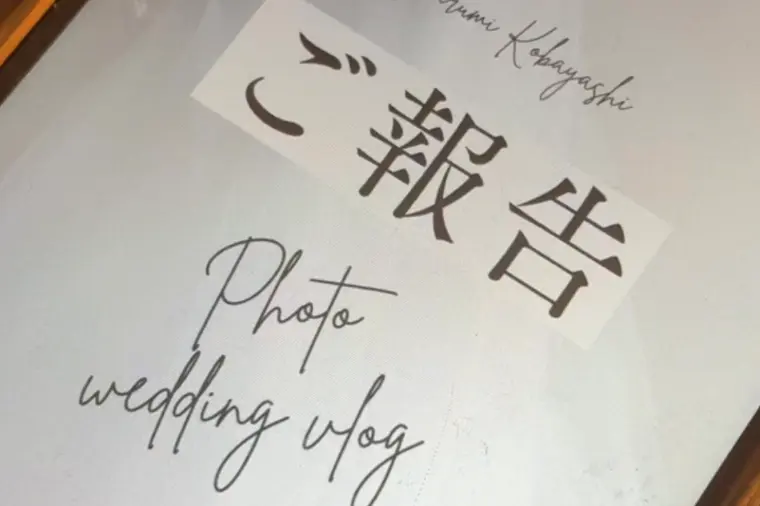 Kobayashi
ご報告
Photo
wedding vlog